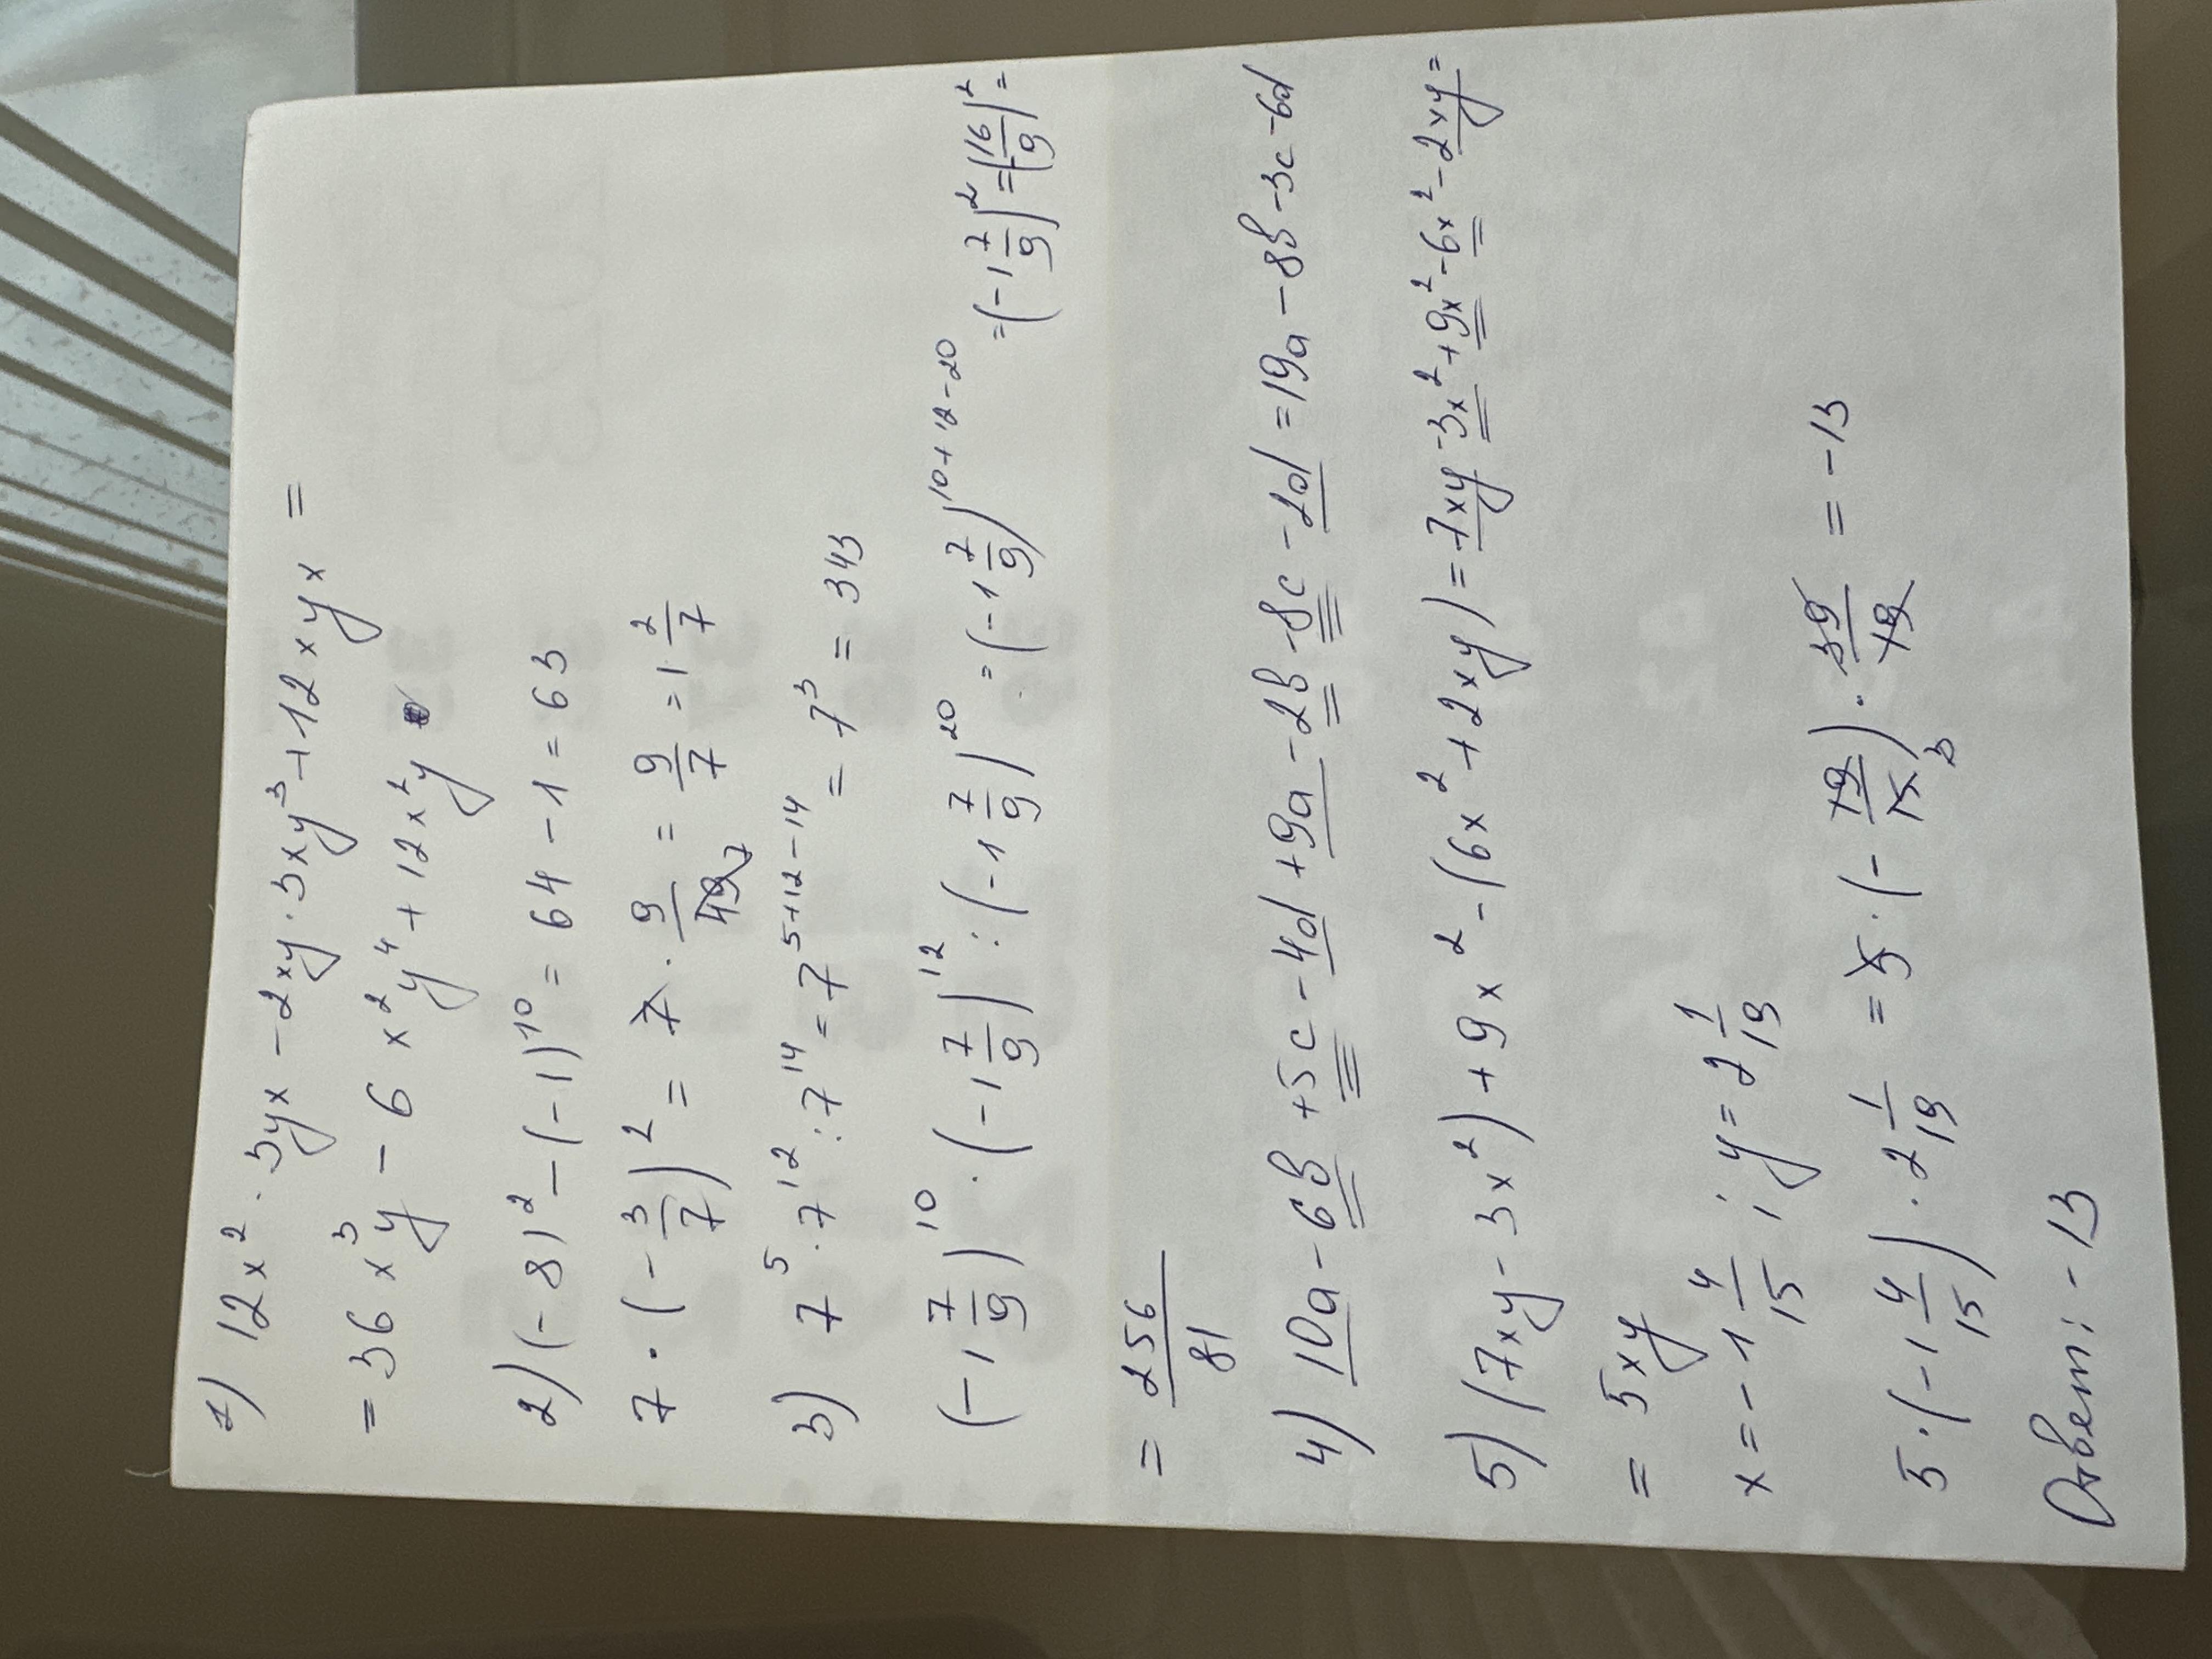 1) 12x² · 3yx - 2xy · 3xy³ + 12xyx =
= 36x³y - 6x²y⁴ + 12x²y
2) (-8)² - (-1)¹⁰ = 64 - 1 = 63
7 · (-3/7)² = 7 · 9/49 7 = 9/7 = 1 2/7
3) 7⁵ · 7¹² : 7¹⁴ = 7⁵⁺¹²⁻¹⁴ = 7³ = 343
(-1 7/9)¹⁰ · (-1 7/9)¹² : (-1 7/9)²⁰ = (-1 7/9)¹⁰⁺¹²⁻²⁰ = (-1 7/9)² = (16/9)² =
= 256/81
4) 10a - 6в + 5c - 4d + 9a - 2в - 8c - 2d = 19a - 8в - 3c - 6d
5) (7xy - 3x²) + 9x² - (6x² + 2xy) = 7xy - 3x² + 9x² - 6x² - 2xy =
= 5xy
x = -1 4/15 ; y = 2 1/19
5 · (-1 4/15) · 2 1/19 = 5 · (-19/15 3) · 39/19 = -13
Ответ: -13